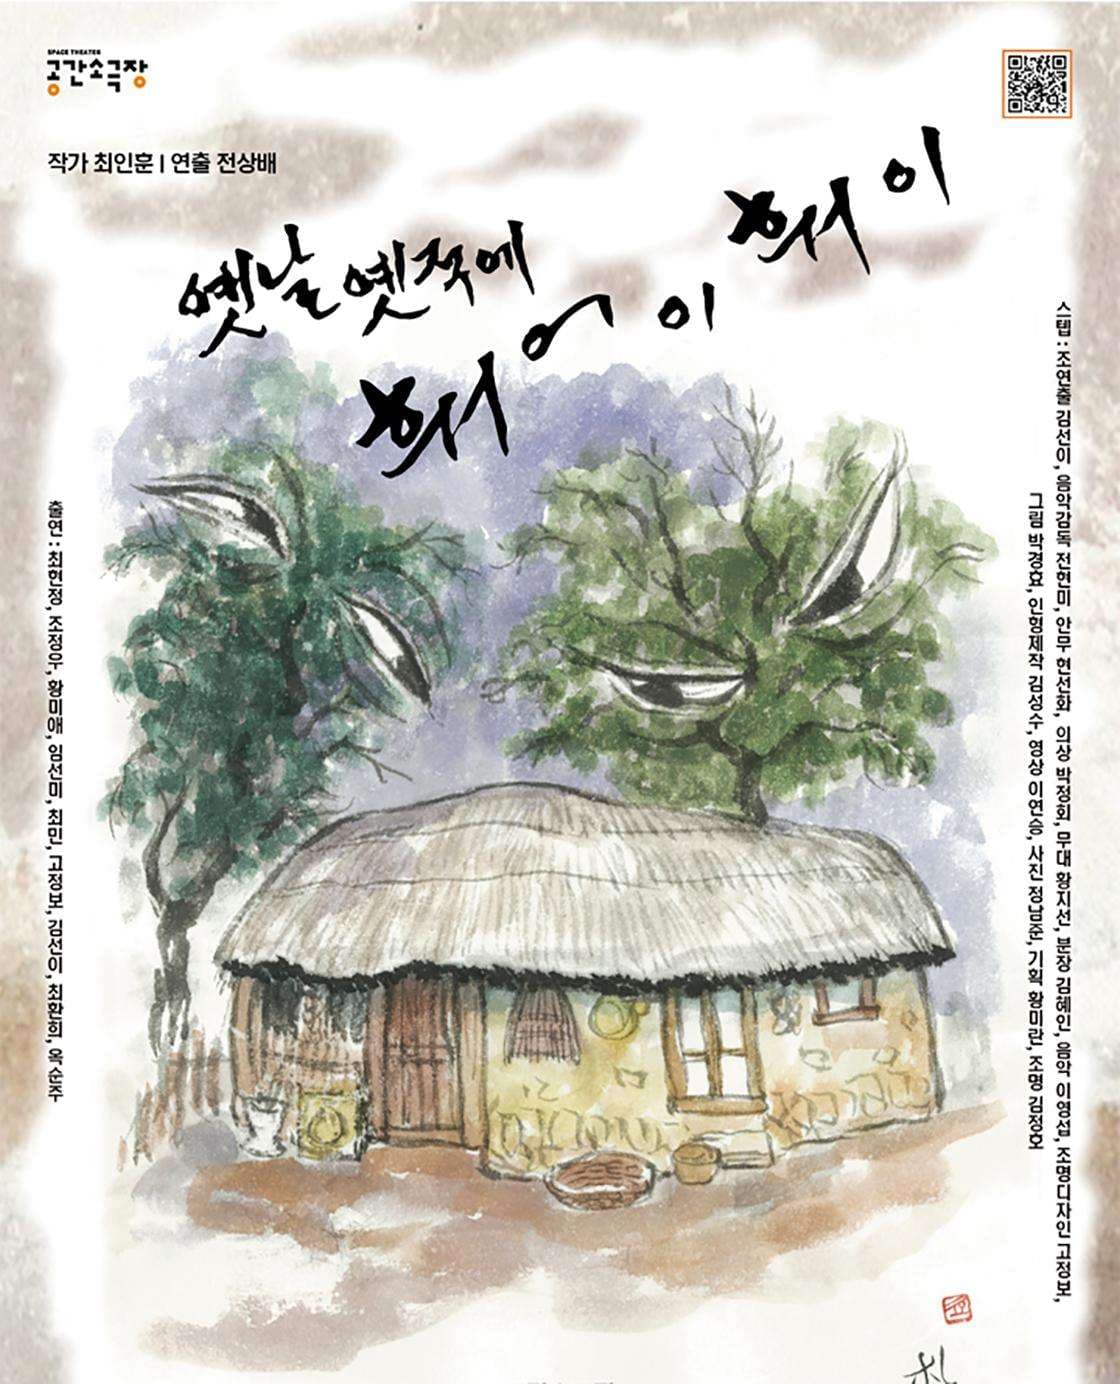 SPACE THEATER
공간소극장
작가 최인훈 | 연출 전상배
옛날 옛적에
훠어이 훠이
출연 : 최현정, 조정우, 황미애, 임선미, 최민, 고정보, 김선이, 최환희, 옥순주
스텝 : 조연출 김선이, 음악감독 전현미, 안무 현선화, 의상 박정희, 무대 황지선, 분장 김혜인, 음악 이형섭, 조명디자인 고정보,
그림 박경효, 인형제작 김성수, 영상 이연승, 사진 정남준, 기획 황미란, 조명 김정호